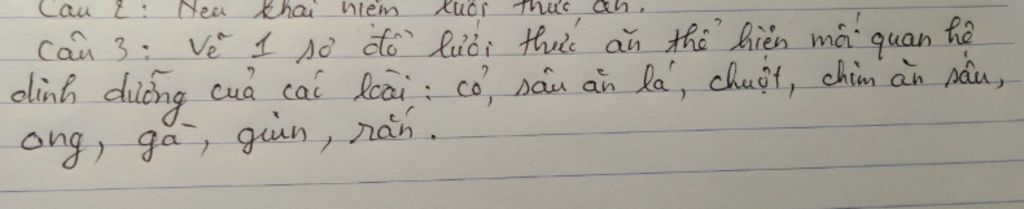 Câu 2: Nêu khái niệm lưới thức ăn.
Câu 3: Vẽ 1 sơ đồ lưới thức ăn thể hiện mối quan hệ
dinh dưỡng của các loài: cỏ, sâu ăn lá, chuột, chim ăn sâu,
ong, gà, giun, rắn.